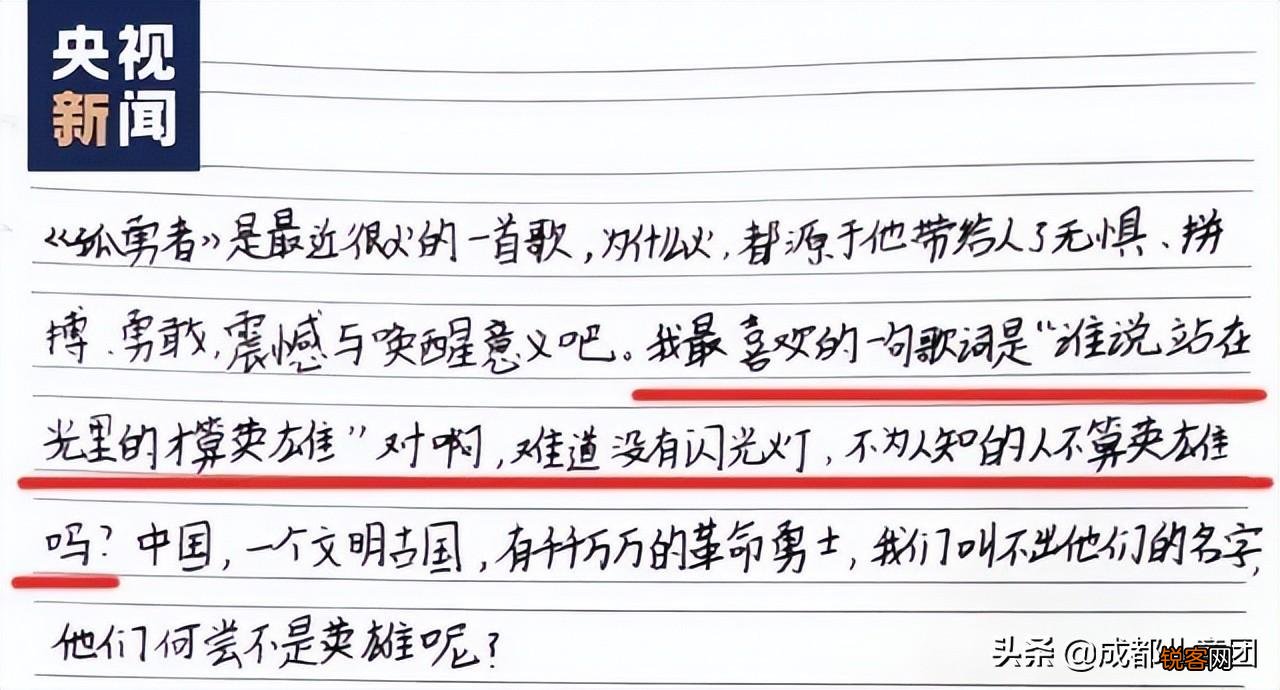 央视
新闻
《孤勇者》是最近很火的一首歌,为什么火,都源于他带给人了无惧、拼
搏、勇敢,震憾与唤醒意义吧。我最喜欢的一句歌词是“谁说站在
光里的才算英雄”对啊,难道没有闪光灯,不为人知的人不算英雄
吗?中国,一个文明古国,有千千万万的革命勇士,我们叫不出他们的名字,
他们何尝不是英雄呢?
头条 @成都 团
锐客网